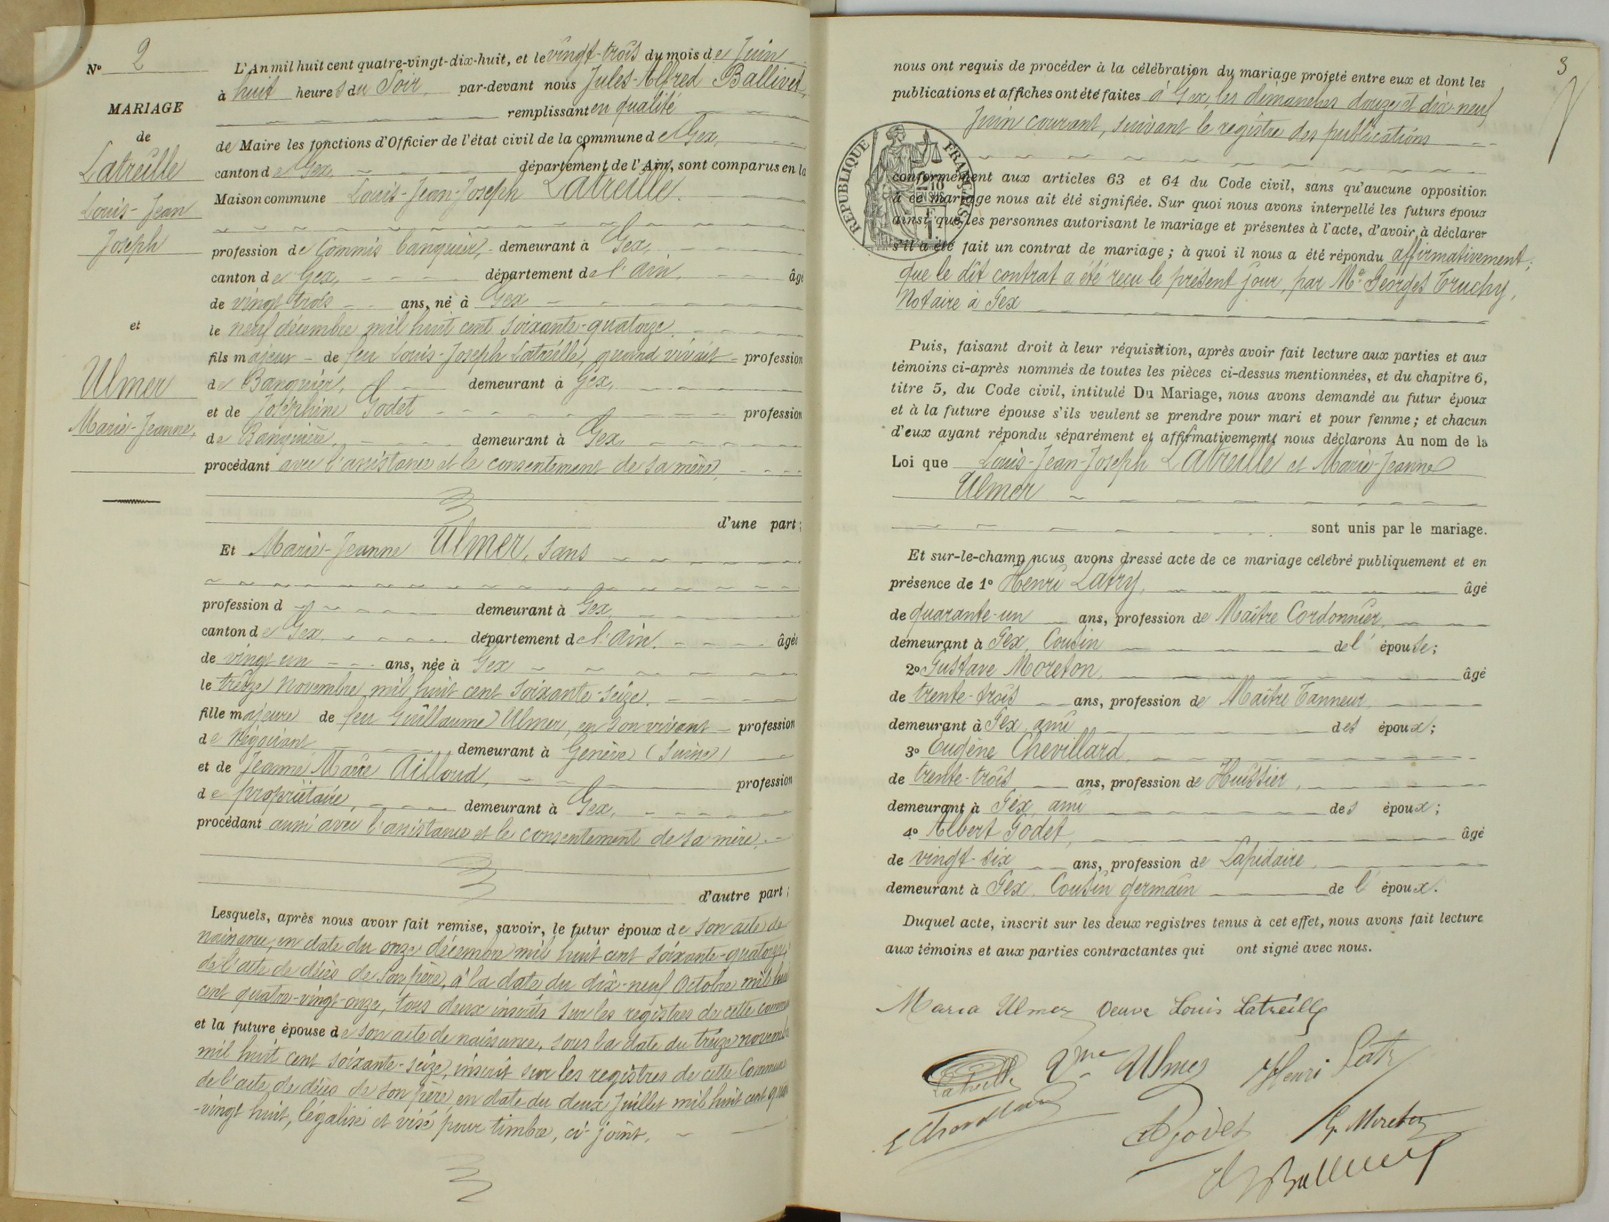 N° 2
MARIAGE
de
Latreille
Louis-Jean
Joseph
et
Ulmer
Marie-Jeanne,
L'An mil huit cent quatre-vingt-dix-huit, et le vingt-trois du mois de Juin
à huit heures du Soir par-devant nous Jules-Alfred Ballivet,
remplissant en qualité
de Maire les fonctions d'Officier de l'état civil de la commune de Gex,
canton de Gex, département de l'Ain, sont comparus en la
Maison commune Louis-Jean-Joseph Latreille.
profession de Commis banquier, demeurant à Gex,
canton de Gex, département de l'Ain, âgé
de vingt trois ans, né à Gex
le neuf décembre mil huit cent soixante-quatorze.
fils majeur de feu Louis-Joseph Latreille, quand vivait profession
de Banquier, demeurant à Gex,
et de Joséphine Godet profession
de Banquière, demeurant à Gex,
procédant avec l'assistance et le consentement de sa mère,
d'une part;
Et Marie-Jeanne Ulmer, sans
profession d demeurant à Gex,
canton de Gex département de l'Ain. âgée
de vingt un ans, née à Gex
le treize Novembre mil huit cent soixante-seize,
fille majeure de feu Guillaume Ulmer, en son vivant profession
de Négociant demeurant à Genève (Suisse)
et de Jeanne Marie Ailloud, profession
de propriétaire, demeurant à Gex,
procédant aussi avec l'assistance et le consentement de sa mère.
d'autre part;
Lesquels, après nous avoir fait remise, savoir, le futur époux de son acte de
naissance, en date du onze décembre mil huit cent soixante-quatorze;
de l'acte de décès de son père, à la date du dix-neuf Octobre mil huit
cent quatre-vingt-onze, tous deux inscrits sur les registres de cette commune
et la future épouse de son acte de naissance, sous la date du treize novembre
mil huit cent soixante-seize, inscrit sur les registres de cette Commune
de l'acte de décès de son père, en date du deux Juillet mil huit cent quatre
-vingt huit, légalisé et visé pour timbre, ci-joint.
3
nous ont requis de procéder à la célébration du mariage projeté entre eux et dont les
publications et affiches ont été faites à Gex, les dimanches douze et dix-neuf
Juin courant, suivant le registre des publications
RÉPUBLIQUE FRANÇAISE
conformément aux articles 63 et 64 du Code civil, sans qu'aucune opposition
à ce mariage nous ait été signifiée. Sur quoi nous avons interpellé les futurs époux
ainsi que les personnes autorisant le mariage et présentes à l'acte, d'avoir à déclarer
s'il a été fait un contrat de mariage; à quoi il nous a été répondu affirmativement;
que le dit contrat a été reçu le présent jour par Me Georges Truchy,
Notaire à Gex
Puis, faisant droit à leur réquisition, après avoir fait lecture aux parties et aux
témoins ci-après nommés de toutes les pièces ci-dessus mentionnées, et du chapitre 6,
titre 5, du Code civil, intitulé Du Mariage, nous avons demandé au futur époux
et à la future épouse s'ils veulent se prendre pour mari et pour femme; et chacun
d'eux ayant répondu séparément et affirmativement nous déclarons Au nom de la
Loi que Louis-Jean-Joseph Latreille et Marie-Jeanne
Ulmer
sont unis par le mariage.
Et sur-le-champ nous avons dressé acte de ce mariage célébré publiquement et en
présence de 1° Henri Latry, âgé
de quarante-un ans, profession de Maître Cordonnier,
demeurant à Gex, Cousin de l'épouse;
2° Gustave Moreton, âgé
de trente-trois ans, profession de Maître Tanneur
demeurant à Gex, ami des époux;
3° Eugène Chevillard,
de trente-trois ans, profession de Huissier,
demeurant à Gex, ami des époux;
4° Albert Godet, âgé
de vingt-six ans, profession de Lapidaire
demeurant à Gex, Cousin germain de l'époux.
Duquel acte, inscrit sur les deux registres tenus à cet effet, nous avons fait lecture
aux témoins et aux parties contractantes qui ont signé avec nous.
Maria Ulmer Veuve Louis Latreille
Latreille Vve Ulmer Henri Latry
E Chevillard A Godet G. Moreton
Ballivet